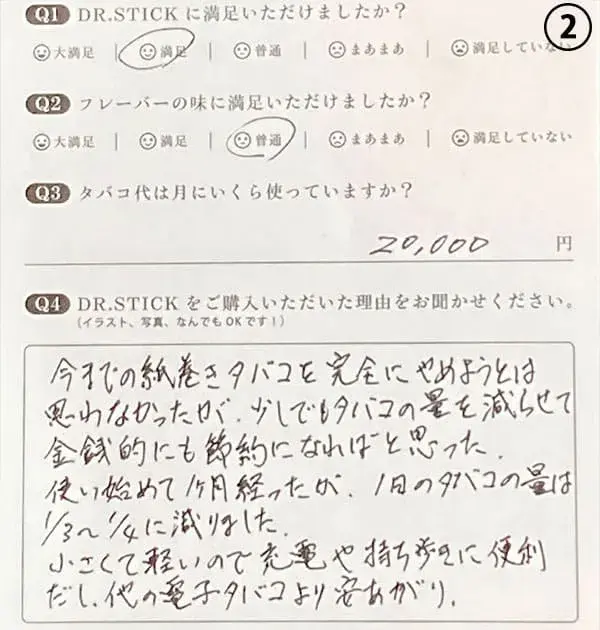 ②
Q1 DR.STICK に満足いただけましたか?
大満足 | 満足 | 普通 | まあまあ | 満足していない
Q2 フレーバーの味に満足いただけましたか?
大満足 | 満足 | 普通 | まあまあ | 満足していない
Q3 タバコ代は月にいくら使っていますか?
20,000 円
Q4 DR.STICK をご購入いただいた理由をお聞かせください。
(イラスト、写真、なんでもOKです!)
今までの紙巻きタバコを完全にやめようとは
思わなかったが、少しでもタバコの量を減らせて
金銭的にも節約になればと思った。
使い始めて1ヶ月経ったが、1日のタバコの量は
1/3〜1/4に減りました。
小さくて軽いので充電や持ち歩きに便利
だし、他の電子タバコより安あがり。